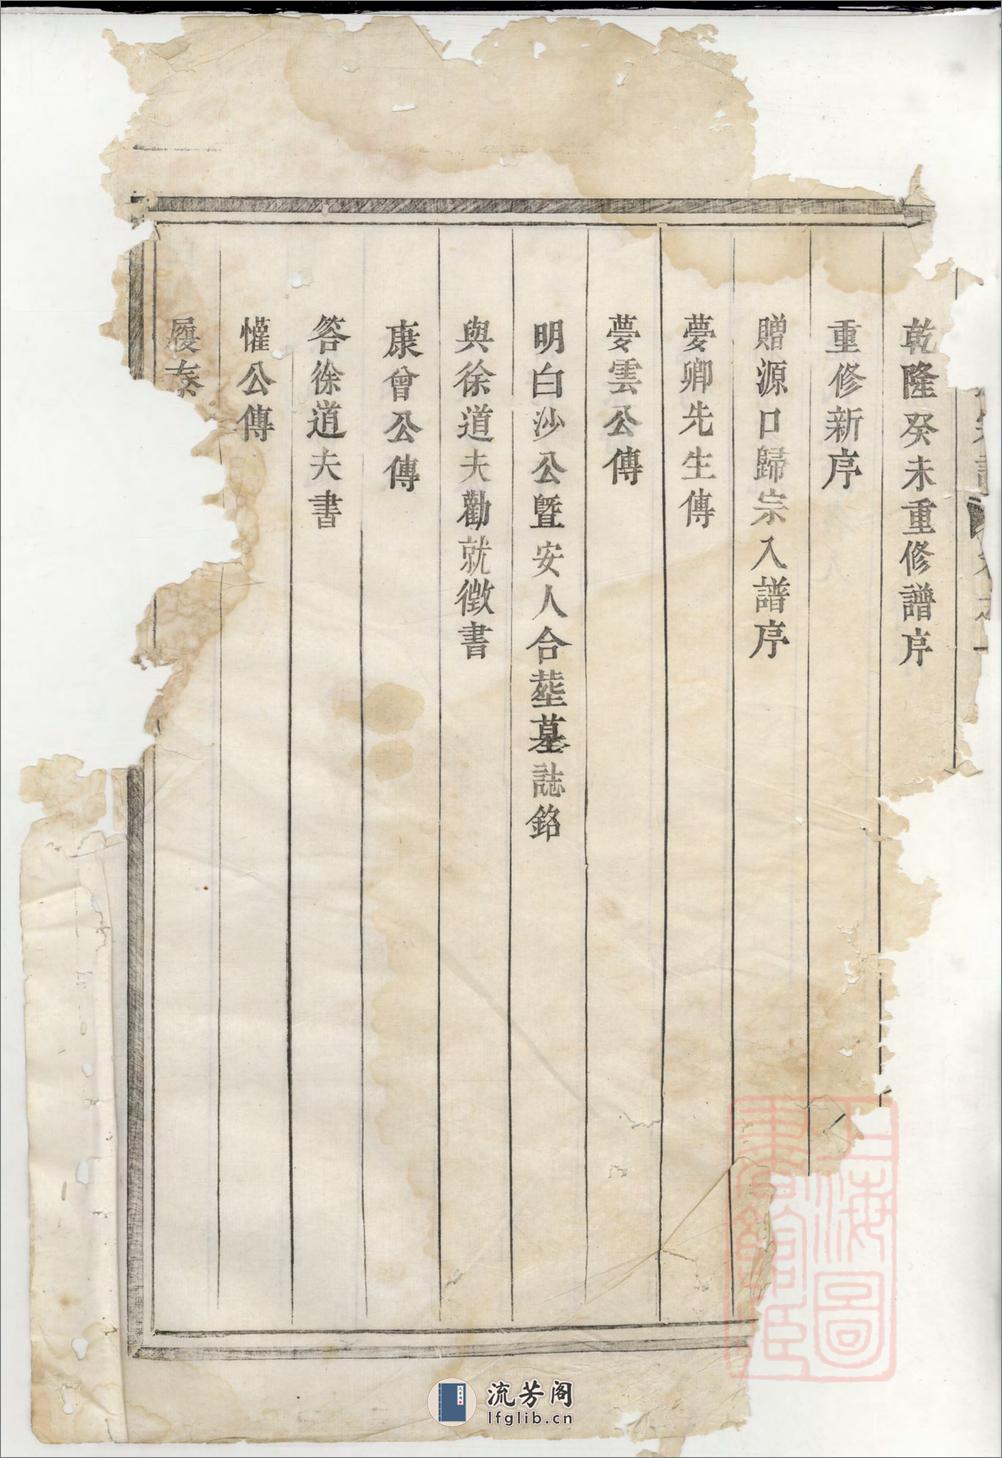 乾隆癸未重修譜序
重修新序
贈源口歸宗入譜序
夢卿先生傳
夢雲公傳
明白沙公曁安人合塟墓誌銘
與徐道夫勸就徵書
康曾公傳
答徐道夫書
懽公傳
履泰
上海圖書館藏
流芳阁
lfglib.cn